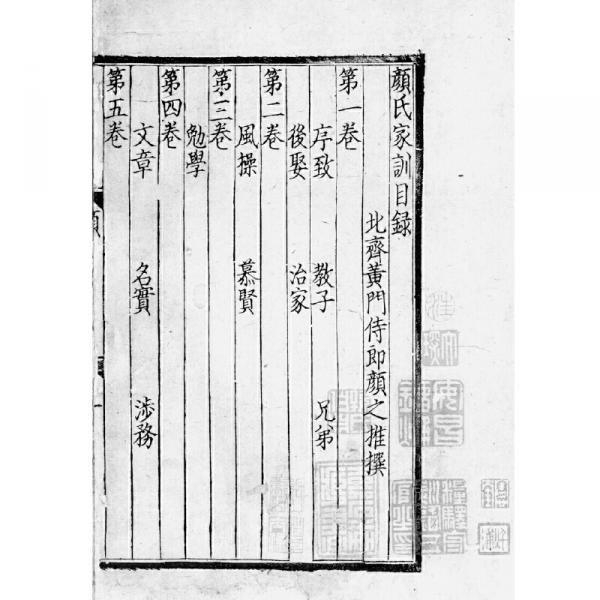 顔氏家訓目録
北齊黃門侍郎顔之推撰
第一卷
序致 教子 兄弟
後娶 治家
第二卷
風操 慕賢
第三卷
勉學
第四卷
文章 名實 涉務
第五卷